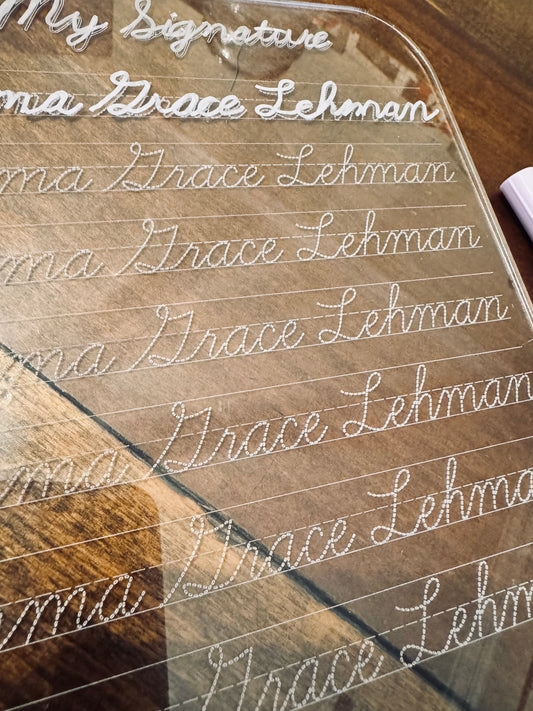 My Signature
ma Grace Lehman
ma Grace Lehman
ma Grace Lehman
ma Grace Lehman
ma Grace Lehman
ma Grace Lehma
Grace Lehm